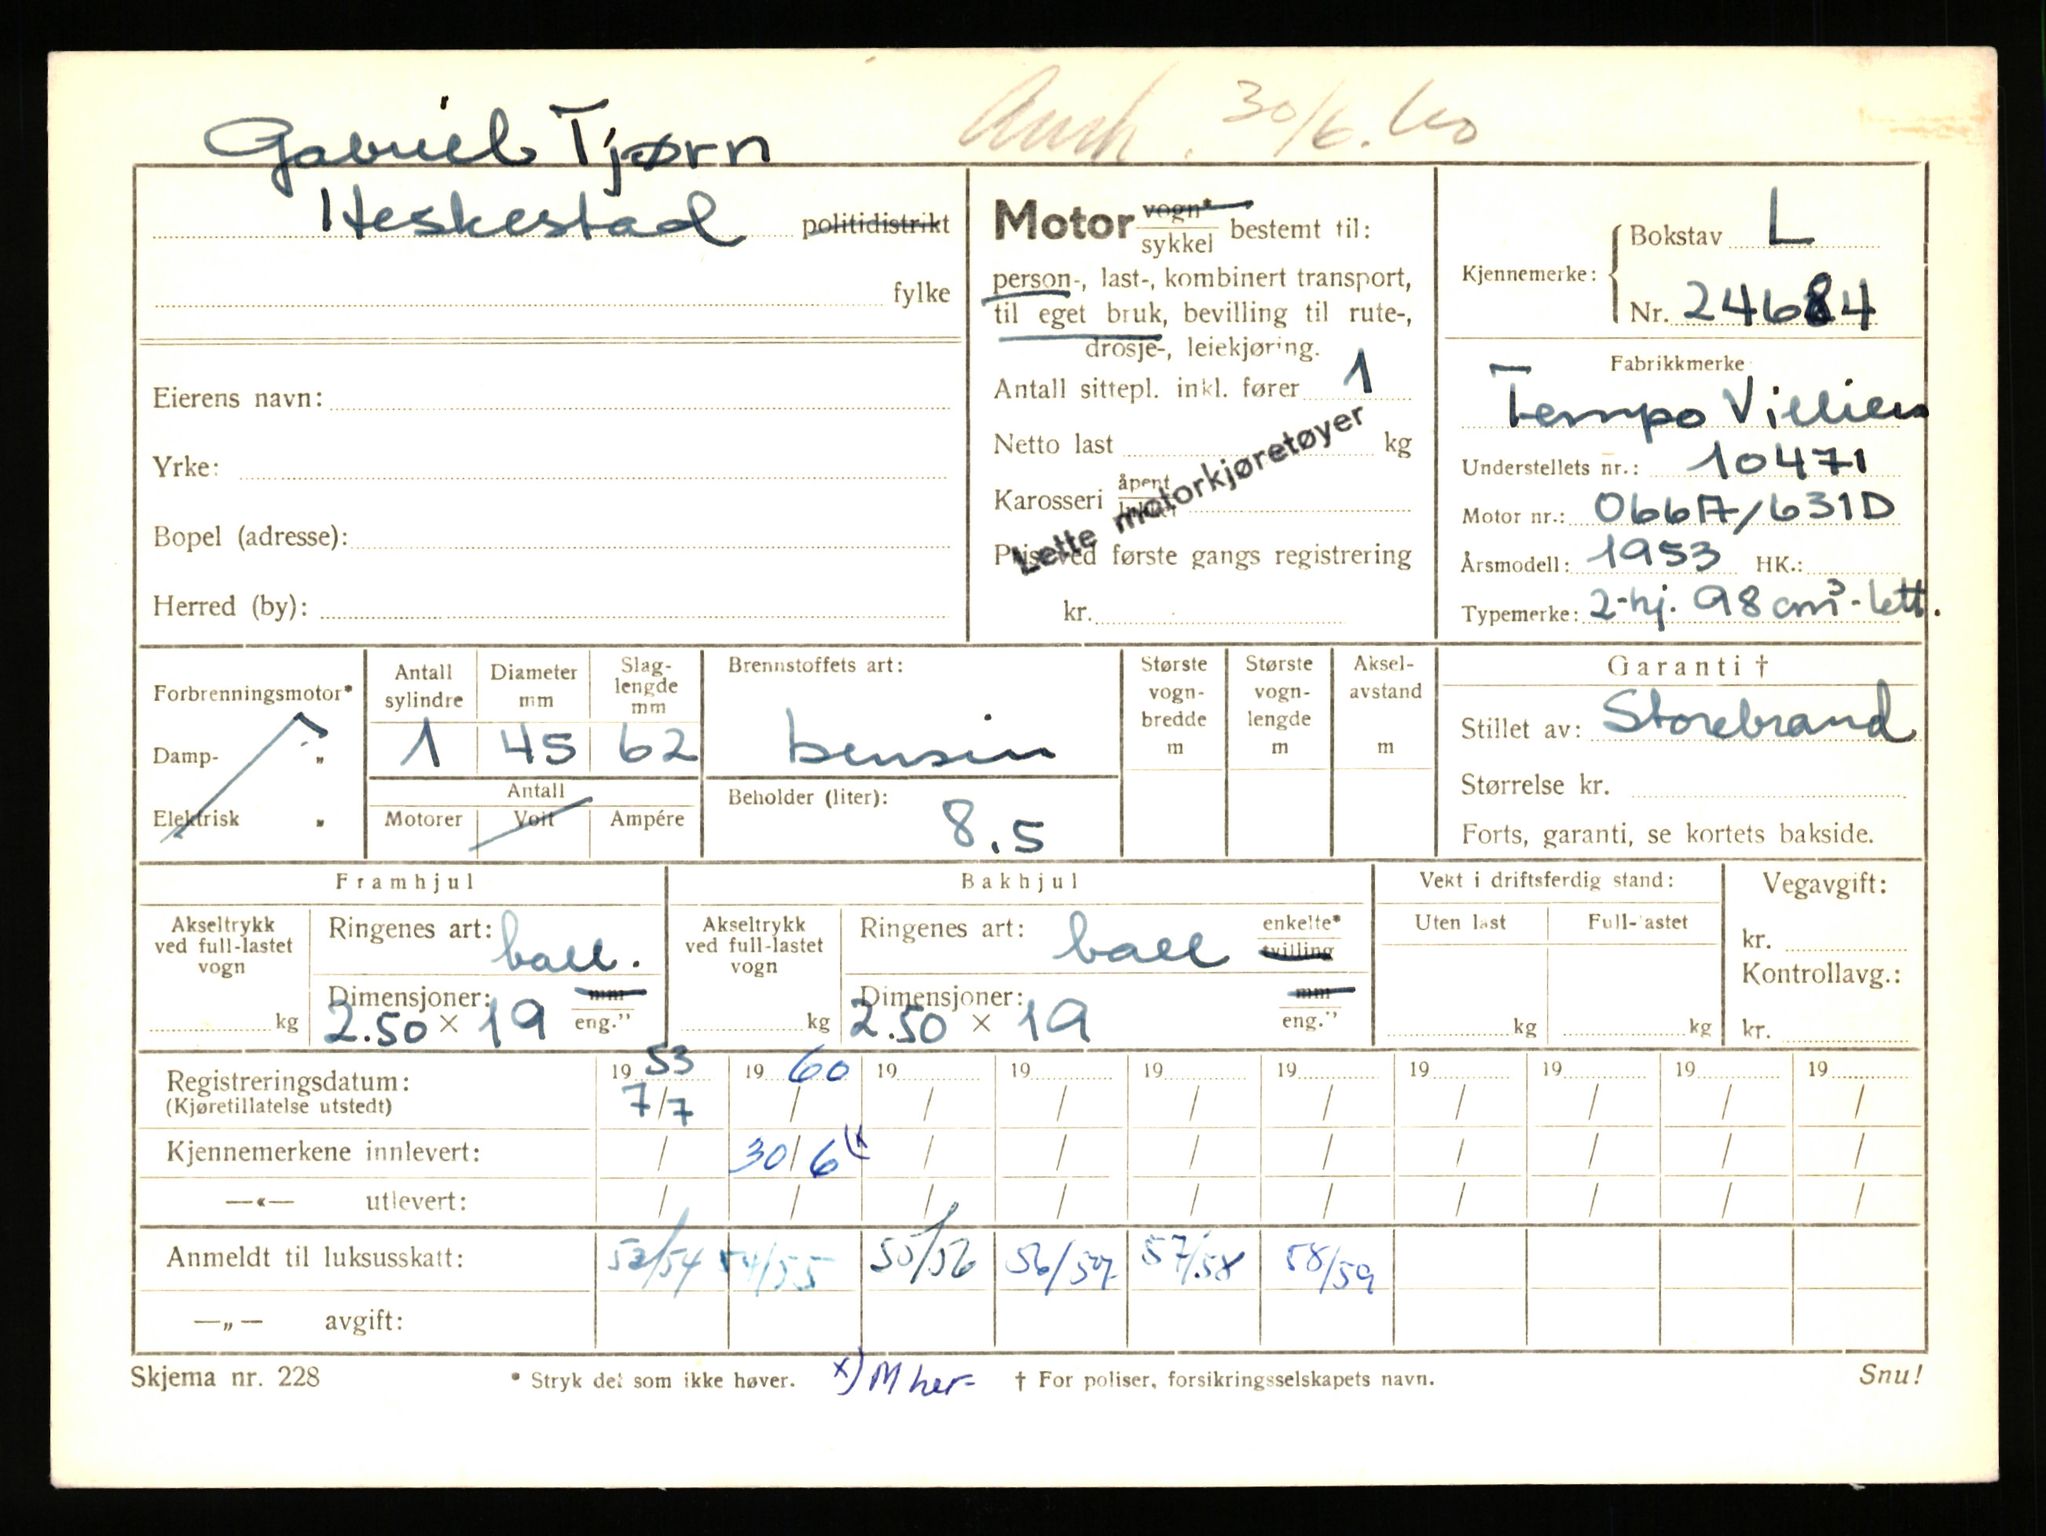 Gabriel Tjørn
30/6. 60
Heskestad politidistrikt
fylke
Eierens navn:
Yrke:
Bopel (adresse):
Herred (by):
Motor vogn*
sykkel bestemt til:
person-, last-, kombinert transport,
til eget bruk, bevilling til rute-,
drosje-, leiekjøring.
Antall sittepl. inkl. fører 1
Netto last kg
Karosseri åpent
lukket
Pris ved første gangs registrering
kr.
Lette motorkjøretøyer
Kjennemerke: Bokstav L
Nr. 24684
Fabrikkmerke
Tempo Villiers
Understellets nr.: 10471
Motor nr.: 066A/631D
Årsmodell: 1953 HK.:
Typemerke: 2-hj. 98 cm³ - lett.
Forbrenningsmotor*
Damp- „
Elektrisk „
Antall sylindre 1
Diameter mm 45
Slag-lengde mm 62
Antall
Motorer Volt Ampére
Brennstoffets art:
bensin
Beholder (liter):
8.5
Største vogn-bredde m
Største vogn-lengde m
Aksel-avstand m
Garanti †
Stillet av: Storebrand
Størrelse kr.
Forts, garanti, se kortets bakside.
Framhjul
Akseltrykk ved full-lastet vogn
kg
Ringenes art: ball.
Dimensjoner: mm
2.50 × 19 eng."
Bakhjul
Akseltrykk ved full-lastet vogn
kg
Ringenes art: ball enkelte*
tvilling
Dimensjoner: mm
2.50 × 19 eng."
Vekt i driftsferdig stand:
Uten last Full-lastet
kg kg
Vegavgift:
kr.
Kontrollavg.:
kr.
Registreringsdatum: 19 53 19 60 19 19 19 19 19 19 19 19
(Kjøretillatelse utstedt) 7/7 / / / / / / / / /
Kjennemerkene innlevert: / 30/6 / / / / / / / /
—«— utlevert: / / / / / / / / / /
Anmeldt til luksusskatt: 53/54 54/55 55/56 56/57 57/58 58/59
—„— avgift:
Skjema nr. 228 * Stryk det som ikke høver. x) M her- † For poliser, forsikringsselskapets navn. Snu!